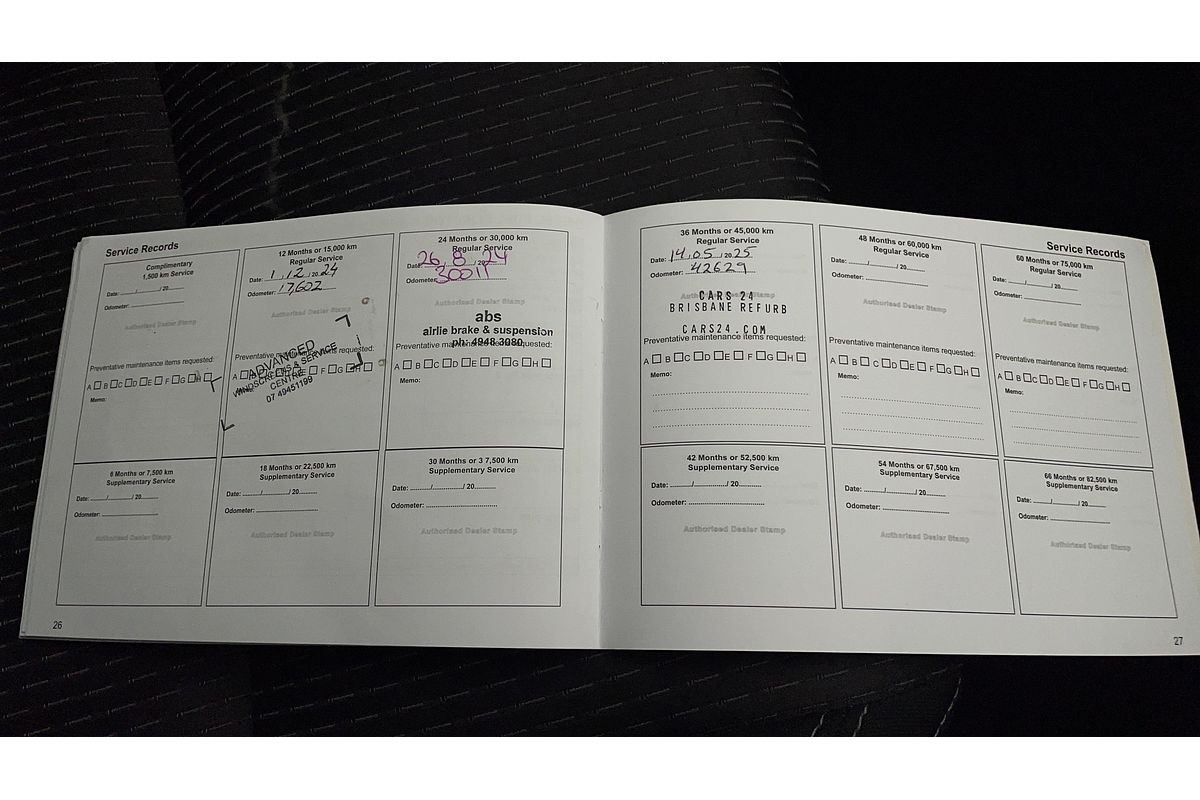 Service Records
Complimentary
1,500 km Service
Date: ........./........./ 20.........
Odometer: ..............................
Authorised Dealer Stamp
A B C D E F G H
Memo:
12 Months or 15,000 km
Regular Service
Date: 1 / 12 / 20 24
Odometer: 17,602
Authorised Dealer Stamp
Preventative maintenance items requested:
ADVANCED
WINDSCREENS & SERVICE
CENTRE
07 49451199
A B C D E F G H
24 Months or 30,000 km
Regular Service
Date: 26 / 8 / 20 24
Odometer: 30011
Authorised Dealer Stamp
abs
airlie brake & suspension
ph: 4948 3080
Preventative maintenance items requested:
A B C D E F G H
Memo:
6 Months or 7,500 km
Supplementary Service
Date: ........./........./ 20.........
Odometer: ..............................
Authorised Dealer Stamp
18 Months or 22,500 km
Supplementary Service
Date: ........./........./ 20.........
Odometer: ..............................
Authorised Dealer Stamp
30 Months or 3 7,500 km
Supplementary Service
Date: ........./........./ 20.........
Odometer: ..............................
Authorised Dealer Stamp
26
36 Months or 45,000 km
Regular Service
Date: 14 / 05 / 20 25
Odometer: 42629
Authorised Dealer Stamp
CARS 24
BRISBANE REFURB
CARS24.COM
Preventative maintenance items requested:
A B C D E F G H
Memo:
48 Months or 60,000 km
Regular Service
Date: ........./........./ 20.........
Odometer: ..............................
Authorised Dealer Stamp
Preventative maintenance items requested:
A B C D E F G H
Memo:
Service Records
60 Months or 75,000 km
Regular Service
Date: ........./........./ 20.........
Odometer: ..............................
Authorised Dealer Stamp
Preventative maintenance items requested:
A B C D E F G H
Memo:
42 Months or 52,500 km
Supplementary Service
Date: ........./........./ 20.........
Odometer: ..............................
Authorised Dealer Stamp
54 Months or 67,500 km
Supplementary Service
Date: ........./........./ 20.........
Odometer: ..............................
Authorised Dealer Stamp
66 Months or 82,500 km
Supplementary Service
Date: ........./........./ 20.........
Odometer: ..............................
Authorised Dealer Stamp
27